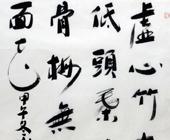 虛心竹
低頭葉
骨梅無
面花
甲午冬